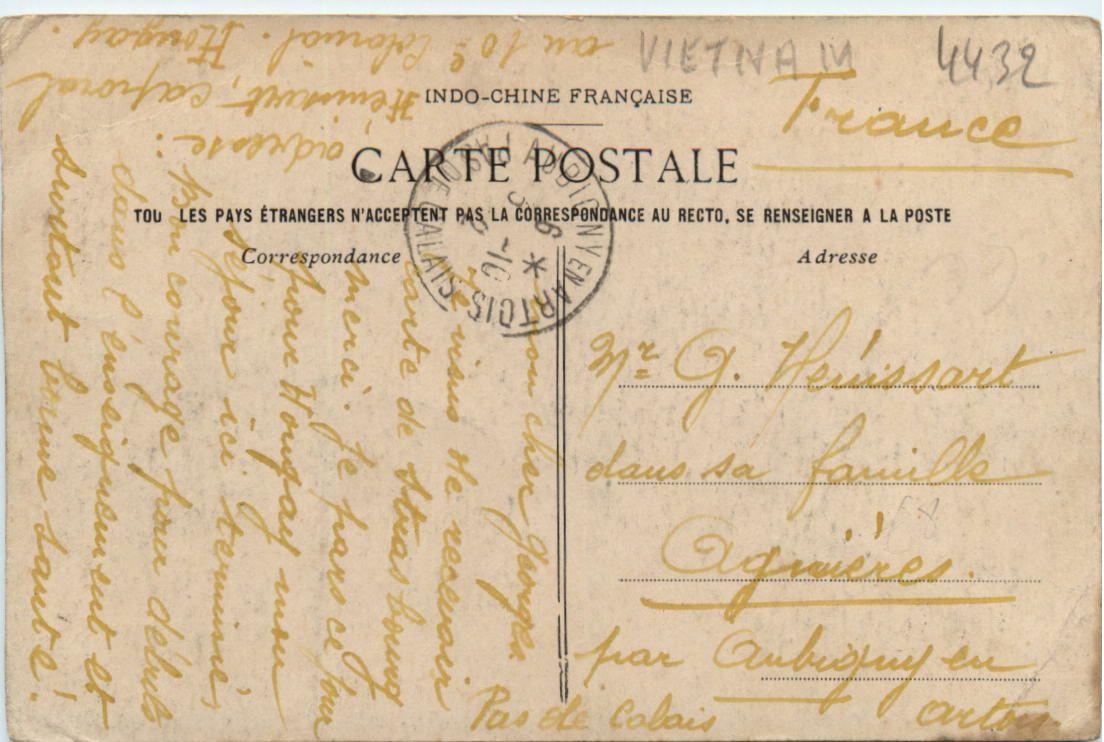 VIETNAM
4432
France
INDO-CHINE FRANÇAISE
CARTE POSTALE
TOU LES PAYS ÉTRANGERS N'ACCEPTENT PAS LA CORRESPONDANCE AU RECTO, SE RENSEIGNER A LA POSTE
Correspondance
Adresse
AUBIGNY EN ARTOIS
PAS DE CALAIS
Mon cher Georges.
Je viens de recevoir
carte de Strasbourg
merci. Je pars ce jour
pour Hongay mon
séjour ici terminé,
Bon courage pour débuts
dans l'enseignement et
surtout bonne santé!
adresse:
Hénissart, caporal
au 10e Colonial. Hongay.
Mr G. Hénissart
dans sa famille
Agnières.
par Aubigny en
Artois
Pas de Calais